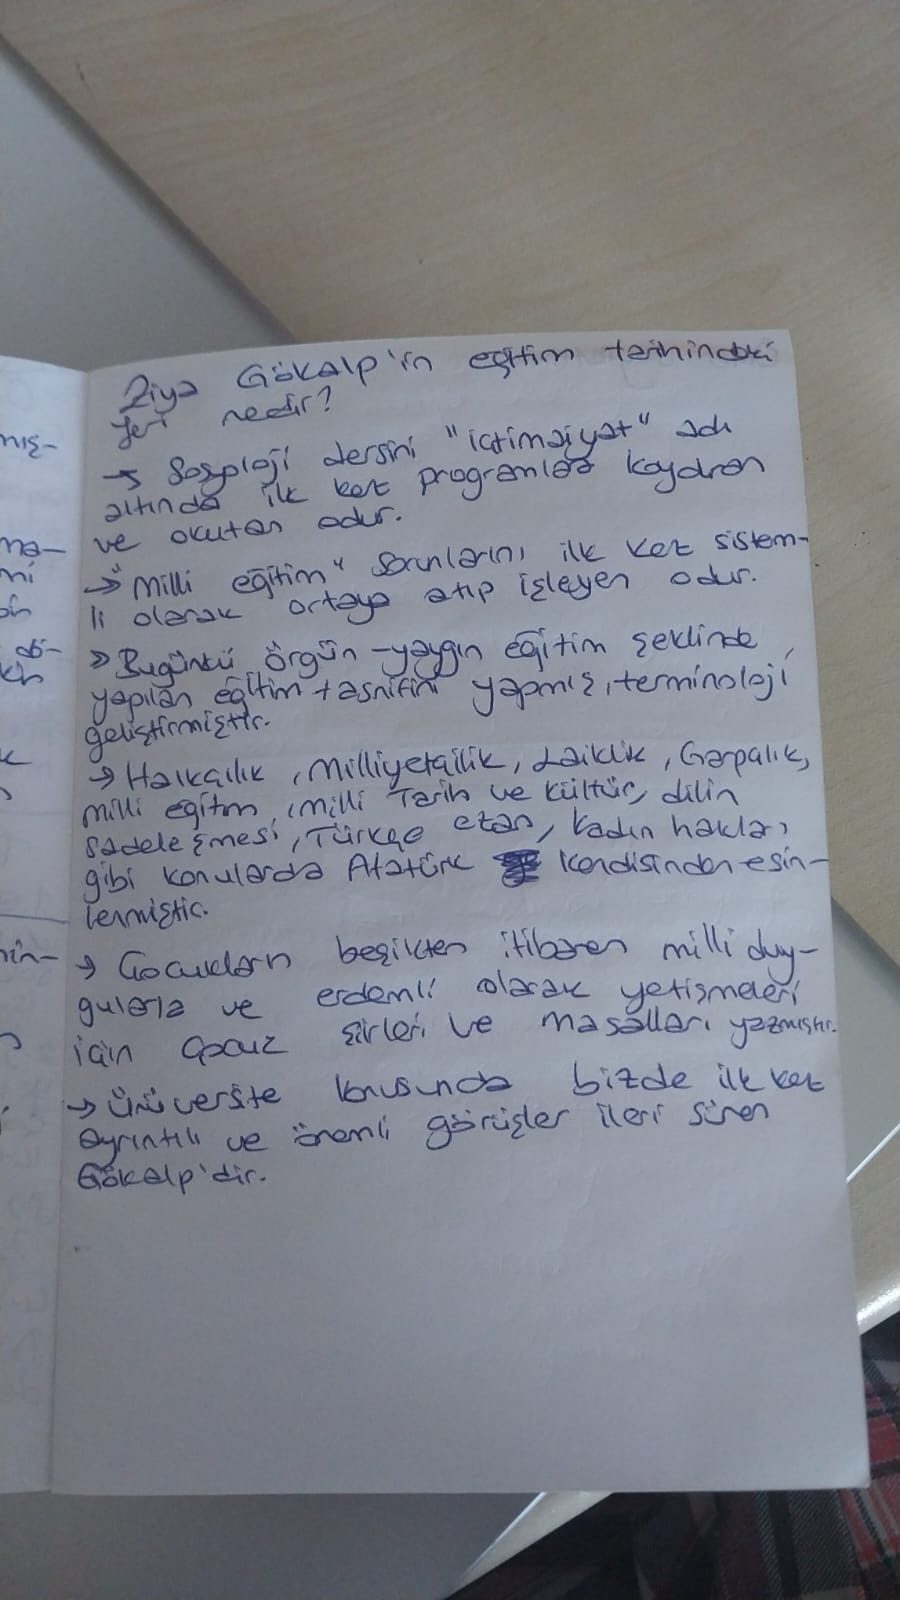 mış-
ma-
mi
nin-
Ziya Gökalp'in eğitim tarihindeki
yeri nedir?
→ Sosyoloji dersini "içtimaiyat" adı
altında ilk kez programlara koyduran
ve okutan odur.
→ "Milli eğitim" sorunlarını ilk kez sistem-
li olarak ortaya atıp işleyen odur.
→ Bugünkü örgün-yaygın eğitim şeklinde
yapılan eğitim tasnifini yapmış, terminoloji
geliştirmiştir.
→ Halkçılık, Milliyetçilik, Laiklik, Garpçılık,
milli eğitim, milli Tarih ve kültür, dilin
sadeleşmesi, Türkçe ezan, kadın hakları
gibi konularda Atatürk kendisinden esin-
lenmiştir.
→ Çocukların beşikten itibaren milli duy-
gularla ve erdemli olarak yetişmeleri
için çocuk şiirleri ve masalları yazmıştır.
→ Üniversite konusunda bizde ilk kez
ayrıntılı ve önemli görüşler ileri süren
Gökalp'dir.